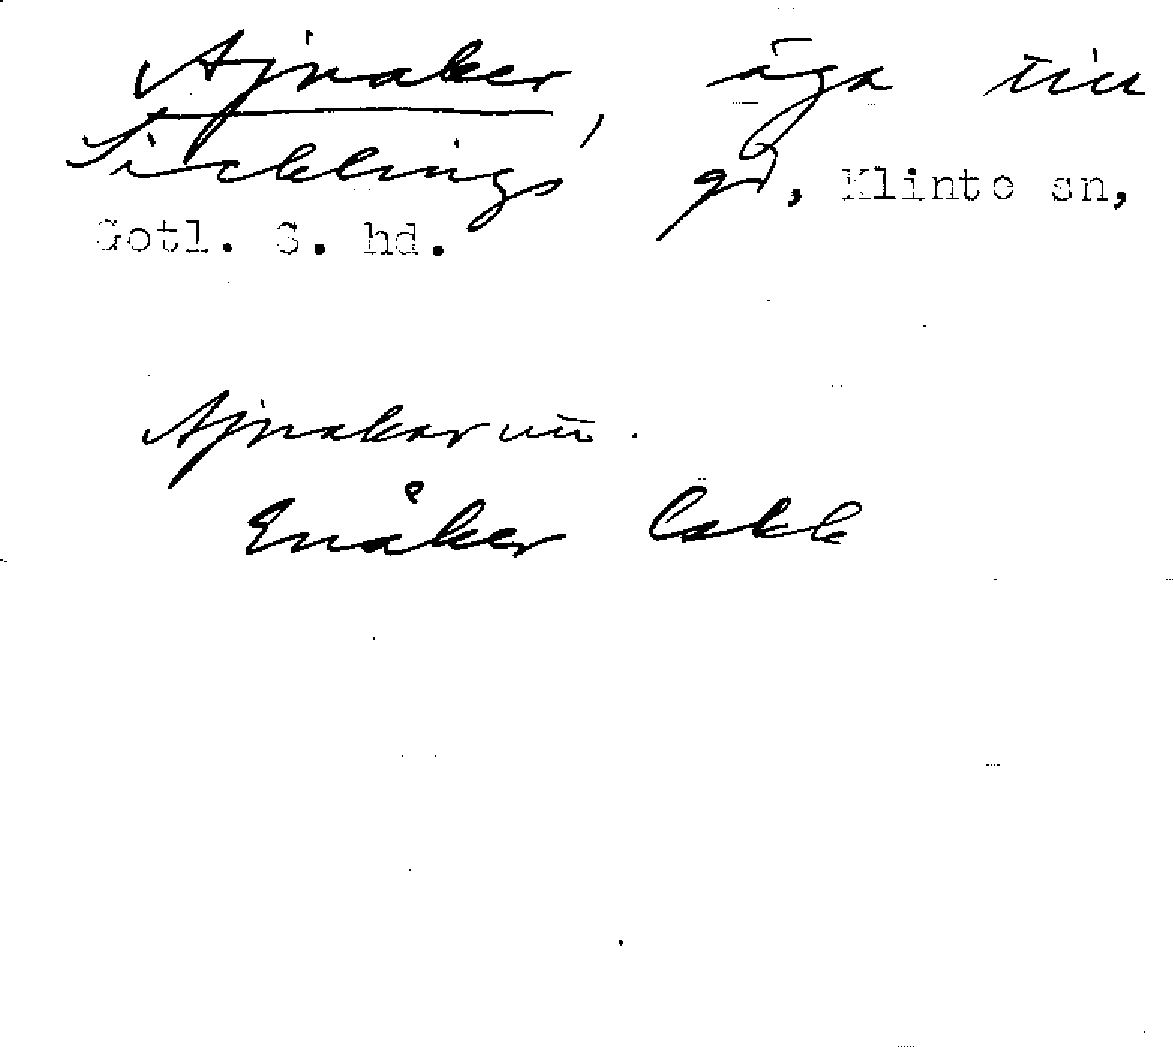 Ajnaker, äga till
Sicklings gd, Klinte sn,
Gotl. S. hd.
Ajnakar
Enåker